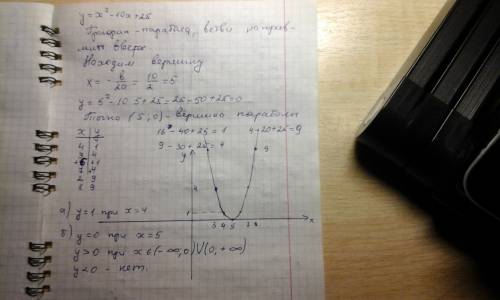 y = x² - 10x + 25
График - парабола, ветви направ-
лены вверх
Находим вершину
x = - b/2a = 10/2 = 5
y = 5² - 10·5 + 25 = 25 - 50 + 25 = 0
(5; 0) - вершина параболы
x y
16 - 40 + 25 = 1 4 - 20 + 25 = 9
9 - 30 + 25 = 4
y
9
4
1
3 4 5
x
а) y = 1 при x = 4
б) y = 0 при x = 5
y > 0 при x ∈ (-∞, 0) ∪ (0, +∞)
y < 0 - нет.